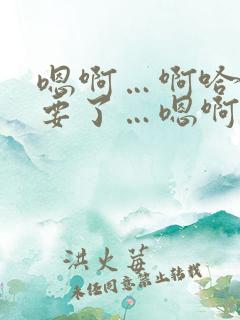 嗯啊…啊哈
要了…嗯啊
洪火莓
未经同意禁止转载